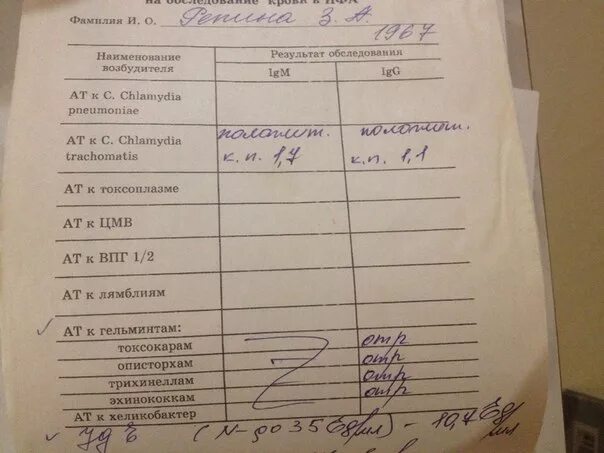 на обследование крови в ИФА
Фамилия И. О. Репина З. А.
1967
Наименование возбудителя Результат обследования
IgM IgG
АТ к C. Chlamydia
pneumoniae
АТ к C. Chlamydia положит. положит.
trachomatis к.п. 1,7 к.п. 1,1
АТ к токсоплазме
АТ к ЦМВ
АТ к ВПГ 1/2
АТ к лямблиям
АТ к гельминтам:
токсокарам отр
описторхам отр
трихинеллам отр
эхинококкам отр
АТ к хеликобактер
Ig E (N - до 35 Ед/мл) - 10,7 Ед/мл